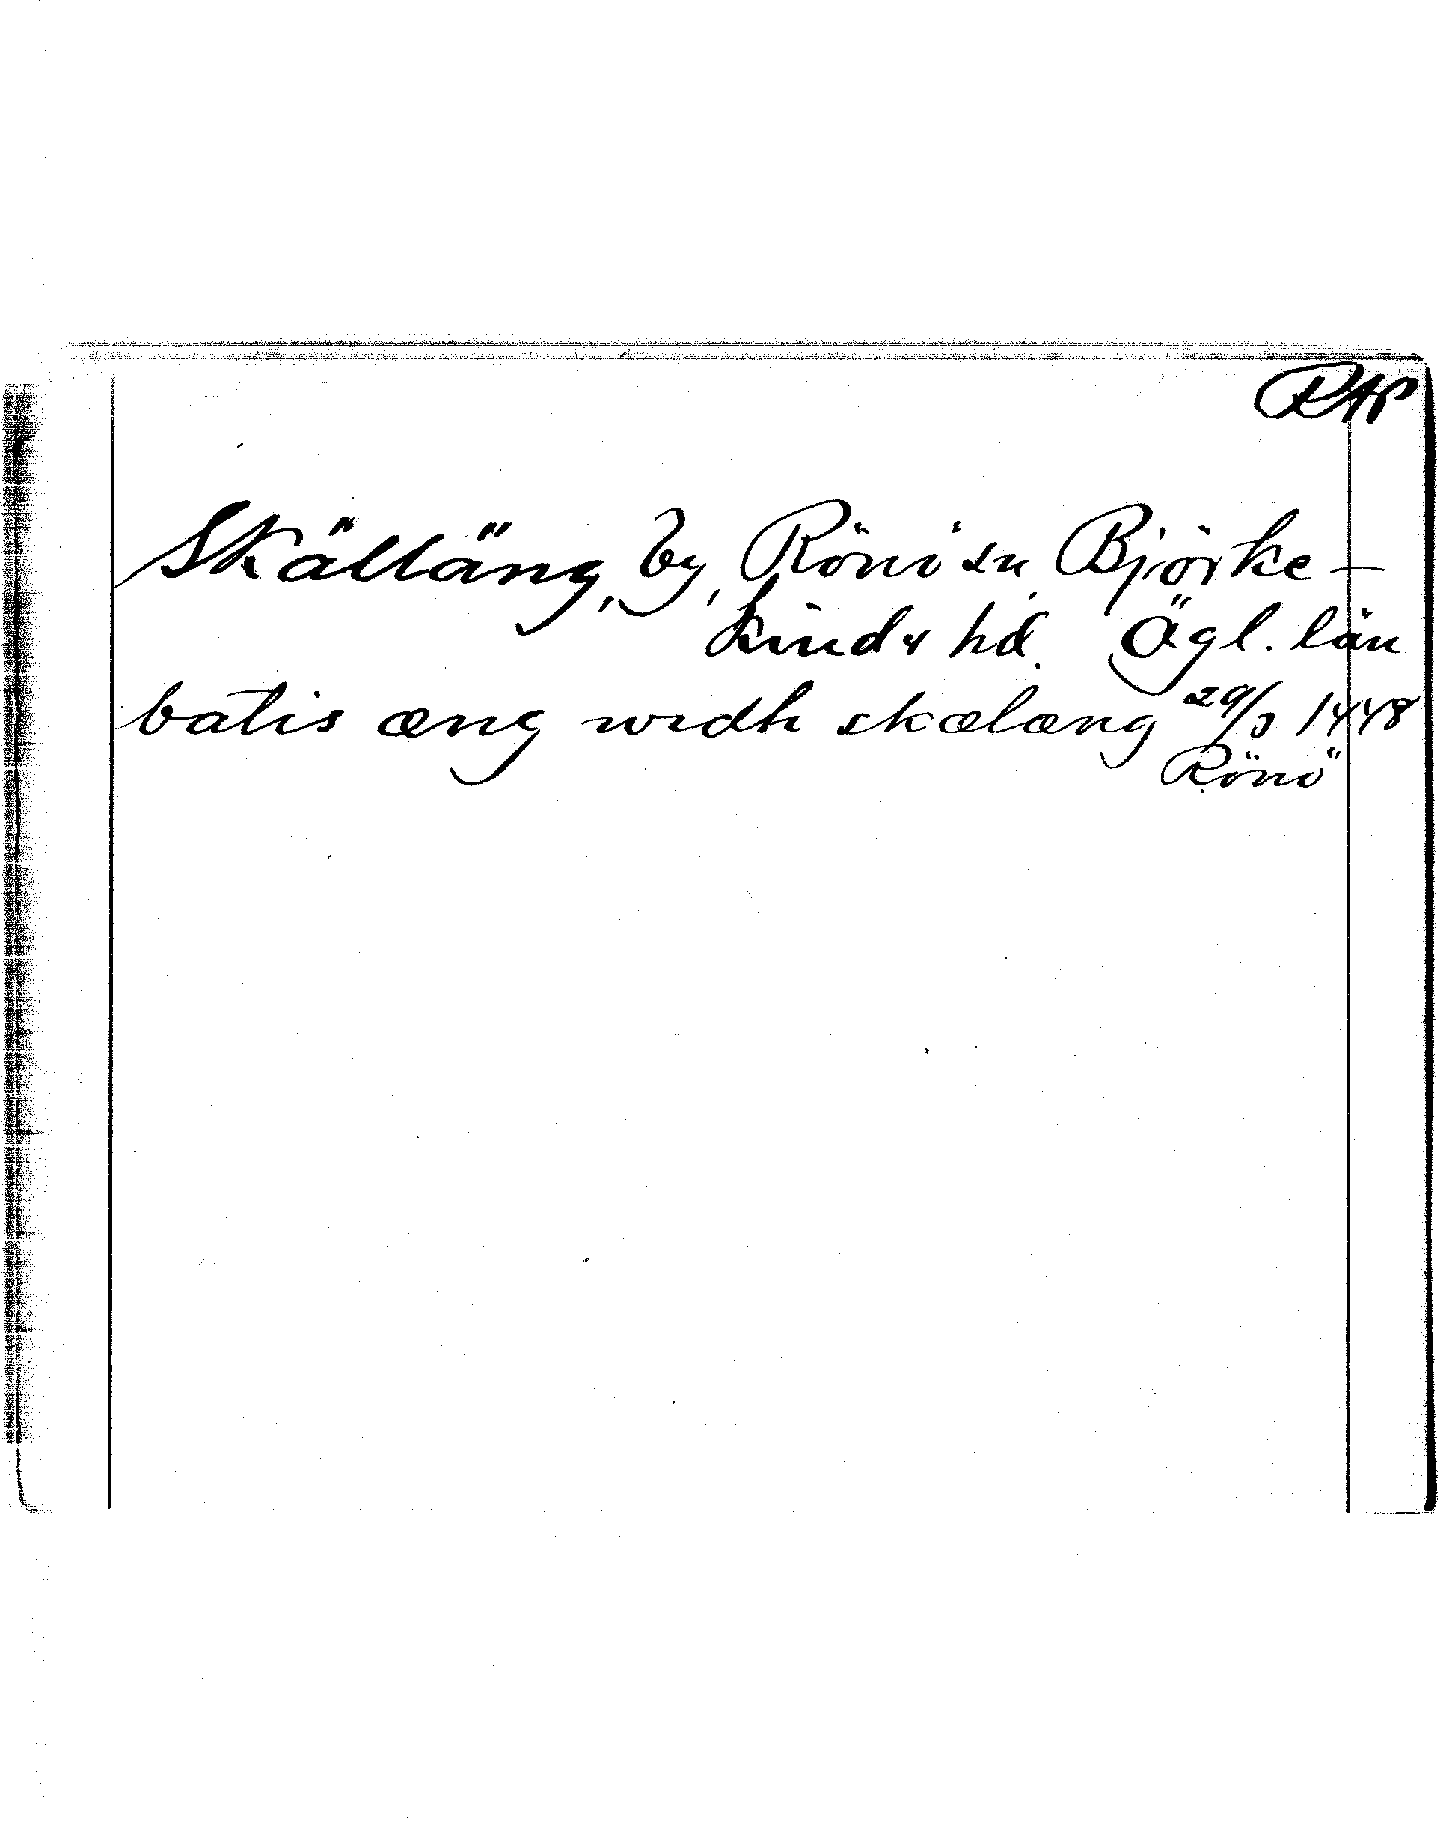 RAP
Skälläng, by, Rönö sn Björke-
kinds hd. Ögl. län
batis æng widh skælæng 29/3 1448
Rönö